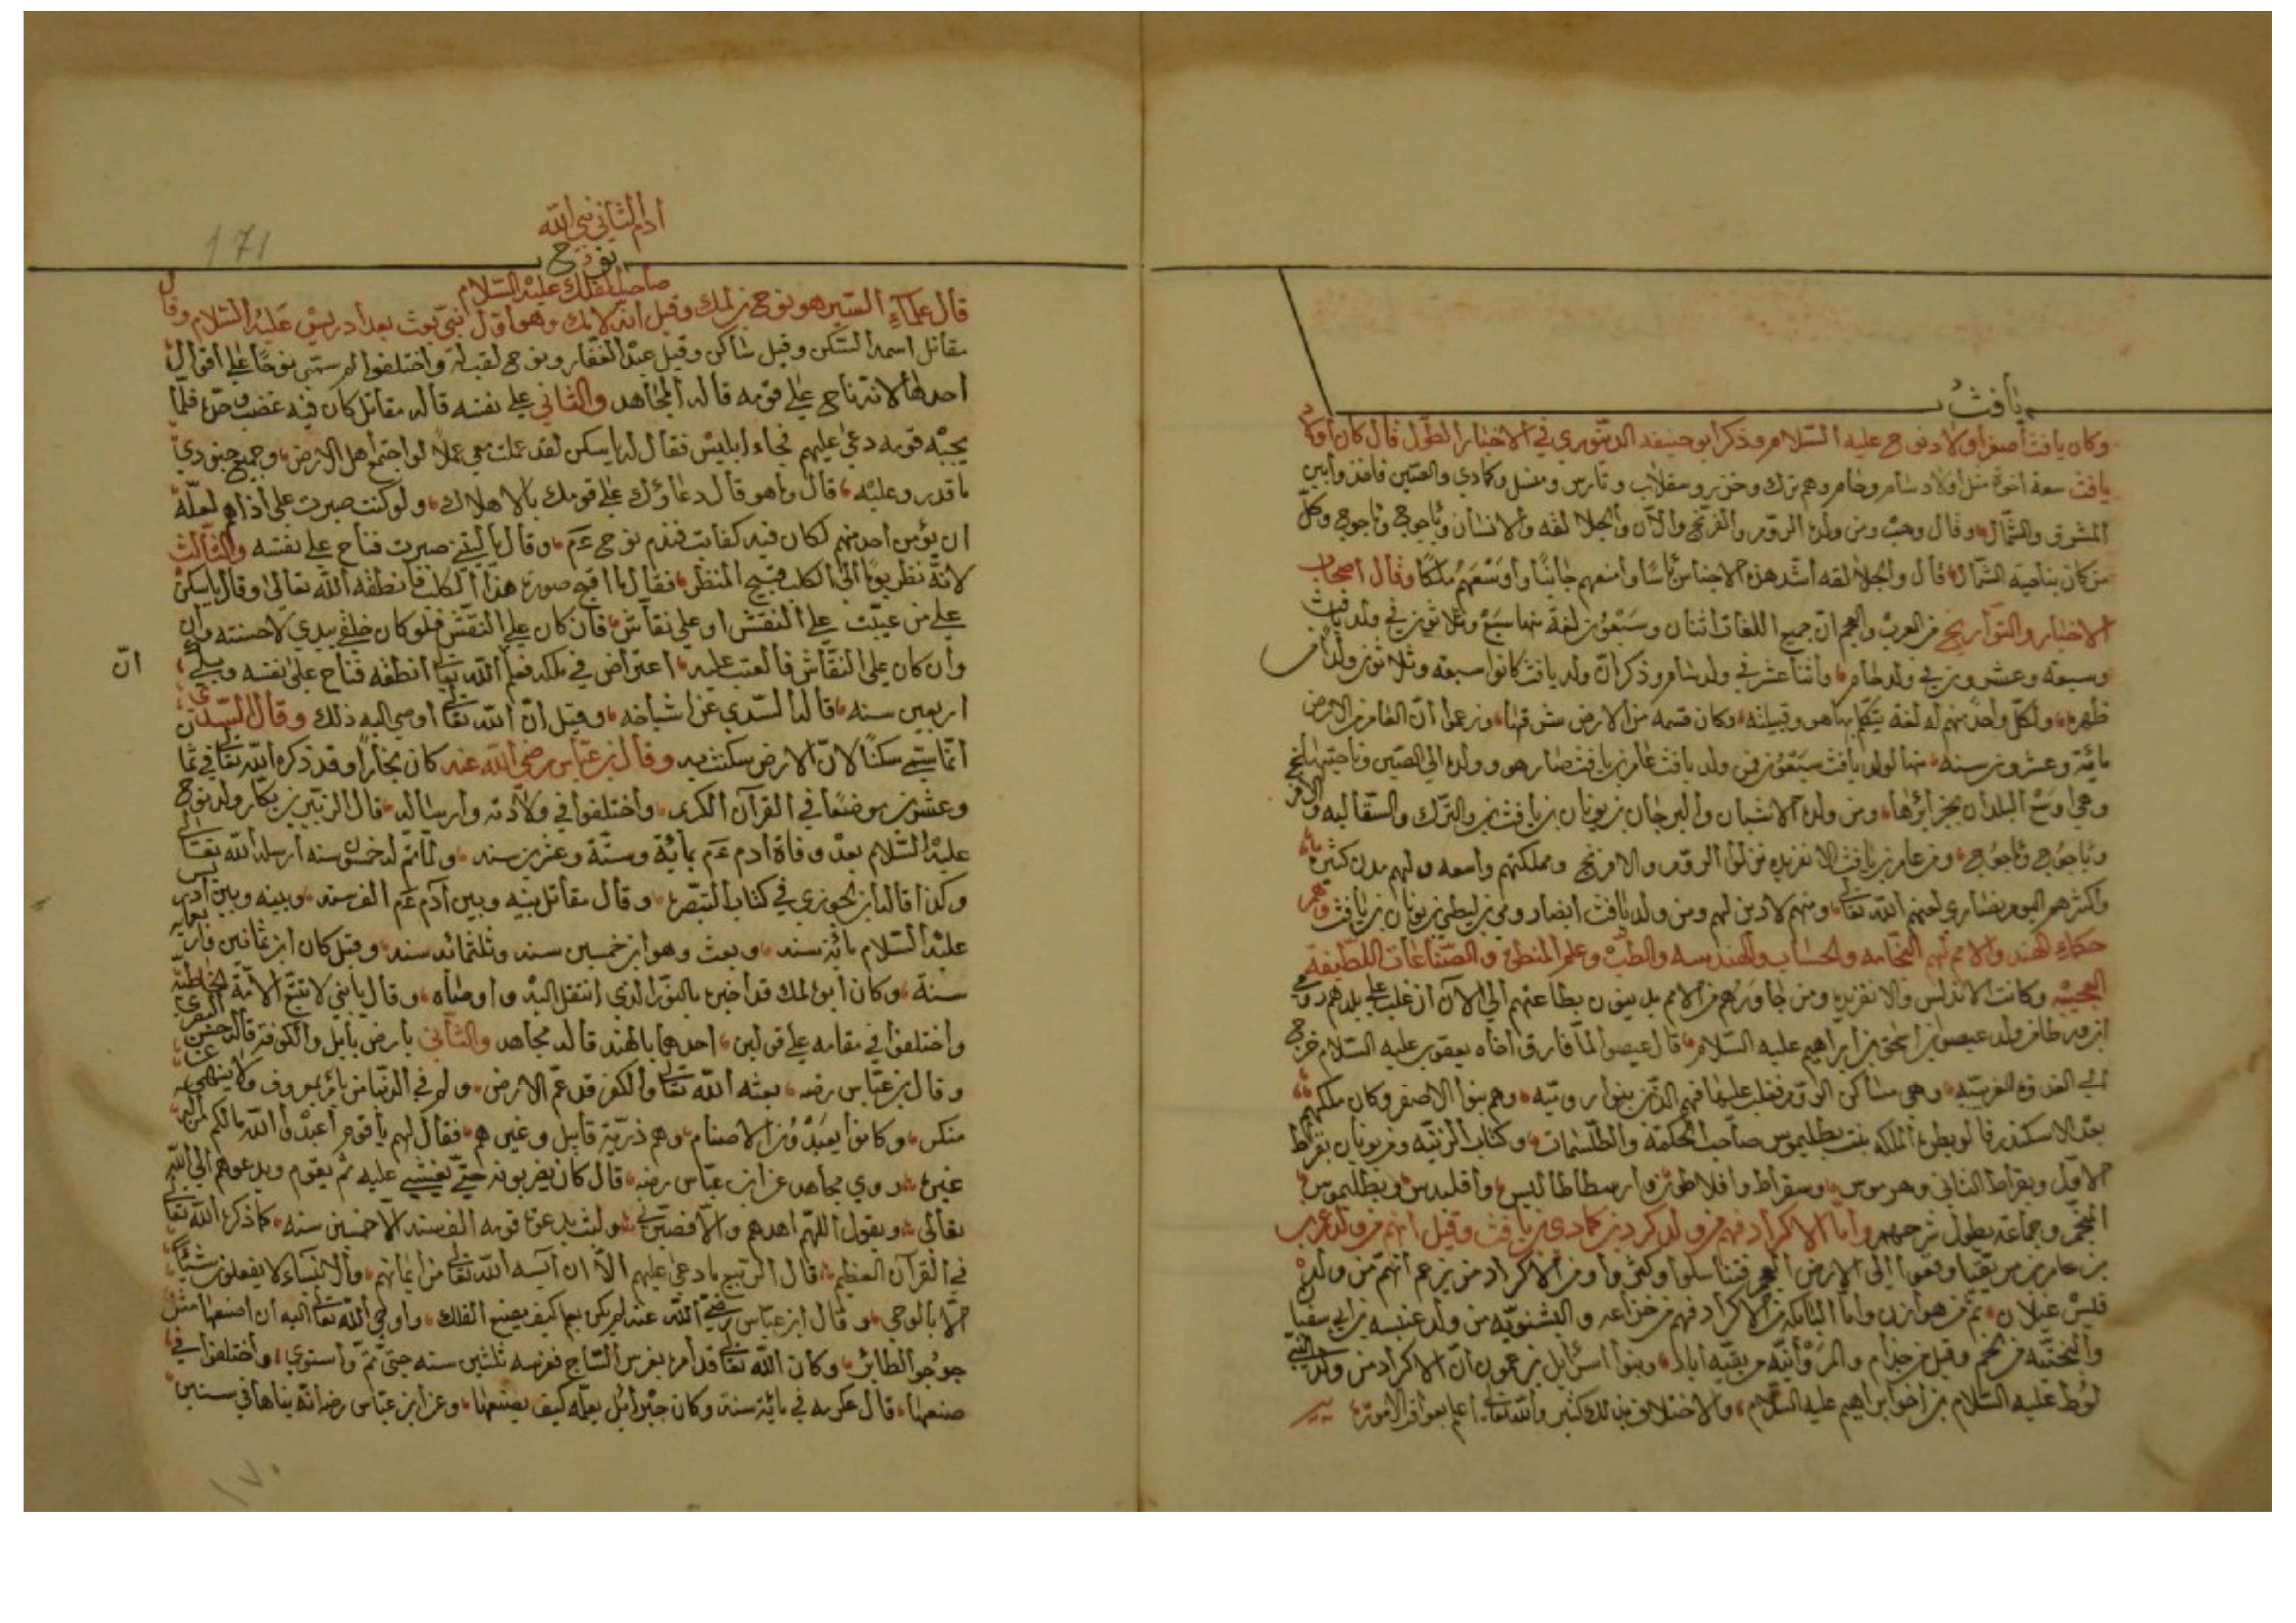 يافث
وكان يافث أصغر أولاد نوح عليه السلام وذكر ابو حنيفه الدينوري في الاخبار الطول قال كان اولاد
يافث سبعة اخوة مثل اولاد سام وحام وهم ترك وخزر وسقلاب وتارس ومنسل وكماري والصين فاخذوا بين
المشرق والشمال وقال وهب ومن ولده الروم والفرنج والآن والجلالقه والاشبان وياجوج وماجوج وكل
من كان بناحية الشمال قال والجلالقه اشد هذه الاجناس باسا وامنعهم جانبا واوسعهم ملكا وقال اصحاب
الاخبار والتواريخ من العرب والعجم ان جميع اللغات اثنان وسبعون لغة منها سبع وثلاثون في ولد يافث
وسبعة وعشرون في ولد حام واثنا عشر في ولد سام وذكر ان ولد يافث كانوا سبعه وثلاثون ولدا من
ظهره ولكل واحد منهم له لغة يتكلم بها هو وقبيلته وكان قسمه من الارض وزعموا ان العامر من الارض
مائة وعشرون سنه منها لولد يافث سبعون فمن ولد يافث عامر بن يافث صار هو وولده الى الصين وناحيتها
وهي اوسع البلدان بجزائرها ومن ولده الاشبان والبرجان بن يونان بن يافث والترك والسقالبه
وياجوج وماجوج ومن عامر بن يافث الافرنج فمن الروم والافرنج ومملكتهم واسعه ولهم مدن كثيرة
واكثرهم اليوم نصارى لعنهم الله تعالى ومنهم لا دين لهم ومن ولد يافث ايضا رومي بن ليطي بن يونان بن يافث
حكماء الهند والامم لهم النجامه والحساب والهندسه والطب وعلم المنطق والصناعات اللطيفة
العجيبة وكانت الاندلس ومن جاورهم من الامم يدينون بطاعتهم الى الآن غلب على بلدهم رومي
ولد عيصو بن اسحق بن ابراهيم عليه السلام قال عيصو لما فارق اخاه يعقوب عليه السلام خرج
وهي مساكن الروم فغلب عليها فهم الذين بنوا روميه وهم بنوا الاصفر وكان ملكهم
بعد الاسكندر الملكه بنت بطليموس صاحب الحكمة والطلسمات وكتاب الزينه ومن يونان بقراط
الاول وبقراط الثاني وسقراط وافلاطون وارسطاطاليس واقليدس وبطليموس
المنجم وجماعة يطول شرحهم واما الاكراد فهم من ولد كرد بن كمادي بن يافث وقيل انهم من ولد عرب
بن عامر بن مزيقيا وقعوا الى الارض العجم فتناسلوا وكثروا ومن الاكراد من يزعم انهم من ولد
قيس عيلان ثم من هوازن واما من الاكراد فهم من خزاعه من ولد عنبسه بن ابي سفيان
من لخم وقيل من جذام والمروانيه من بقيه اياد وبنوا اسرائيل يزعمون ان الاكراد من ولد
لوط عليه السلام بن اخو ابراهيم عليه السلام والاختلاف في ذلك كثير والله تعالى اعلم بعواقب الامور
171
ادم الثاني نبي الله
نوح
صاحب الفلك عليه السلام
قال علماء السير هو نوح بن لمك وقيل انه لامك وهو اول نبي بعث بعد ادريس عليه السلام وقال
مقاتل اسمه السكن وقيل شاكر وقيل عبد الغفار ونوح لقب له واختلفوا لم سمي نوحا على اقوال
احدها لانه ناح على قومه قاله المجاهد والثاني على نفسه قاله مقاتل كان فيه غضب وحدة فلما
يجبه قومه دعى عليهم فجاء ابليس فقال له يا سكن لقد عملت معي عملا لو اجتمع اهل الارض وجميع جنودي
ما قدروا عليه قال وما هو قال دعاؤك على قومك بالاهلاك ولو كنت صبرت على اذاهم لعله
ان يؤمن احد منهم لكان فيه كفاية فندم نوح عم وقال يا ليتني صبرت فناح على نفسه والثالث
لانه نظر يوما الى الكلب قبيح المنظر فقال ما اقبح صورة هذا الكلب فانطقه الله تعالى وقال يا سكن
على من عيبت على النقش او على نقاش فان كان على النقش فلو كان خلقي بيدي لاحسنته وان
وان كان على النقاش فالعتب عليه اعتراض في ملكه فعلم ان الله تعالى انطقه فناح على نفسه وبكى
ان
اربعين سنه قاله السدي عن اشياخه وقيل ان الله تعالى اوحى اليه ذلك وقال السدي
انما سمي سكنا لان الارض سكنت به وقال بن عباس رضي الله عنه كان نجارا وقد ذكره الله تعالى في ثمانية
وعشرون موضعا في القرآن الكريم واختلفوا في ولادته وارساله قال الزبير بن بكار ولد نوح
عليه السلام بعد وفاة ادم عم بمائة وستة وعشرين سنه ولما تم له خمسون سنه ارسله الله تعالى
وكذا قال ابن الجوزي في كتاب التبصرة وقال مقاتل بينه وبين آدم عم الف سنه وبينه وبين ادريس
عليه السلام مائة سنه وبعث وهو ابن خمسين سنه وثلثمائه سنه وقيل كان ابن ثمانين واربعمائة
سنة وكان ابوه لمك قد اخبره بالنور الذي انتقل اليه واوصاه وقال يا بني لا تتبع الامة الخاطئة
واختلفوا في مقامه على قولين احدهما بالهند قاله مجاهد والثاني بارض بابل والكوفه قاله حسن البصري
وقال بن عباس رضه بعثه الله تعالى والكفر قد عم الارض ولم في الدنيا من يامر بمعروف ولا ينهى عن
منكر وكانوا يعبدون الاصنام وهم ذرية قابيل وغيرهم فقال لهم يا قوم اعبدوا الله ما لكم من اله
غيره روي مجاهد عن ابن عباس رضه قال كان يضربونه حتى يغشي عليه ثم يقوم ويدعوهم الى الله
تعالى ويقول اللهم اهدهم ولبث يدعو قومه الف سنه الا خمسين سنه كما ذكره الله تعالى
في القرآن العظيم قال الربيع ما دعى عليهم الا ان آيسه الله تعالى من ايمانهم والانبياء لا يفعلون شيئا
الا بالوحي وقال ابن عباس رضي الله عنه لم يكن يعلم كيف يصنع الفلك واوحى الله تعالى اليه ان اصنعها مثل
جوجو الطائر وكان الله تعالى قد امره بغرس الساج فغرسه ثلثين سنه حتى تم واستوى واختلفوا في
صنعها قال عكرمه في مائة سنة وكان جبرائيل يعلمه كيف يصنعها وعن ابن عباس رضه انه بناها في سنين
١٧٠